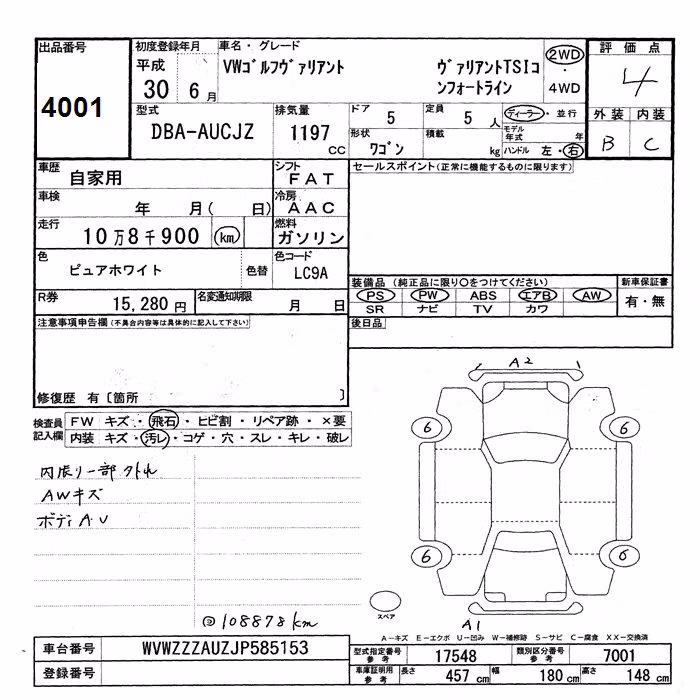 出品番号
4001
初度登録年月
平成
30 6月
車名・グレード
VWゴルフヴァリアント
ヴァリアントTSIコンフォートライン
2WD
・
4WD
評価点
4
外装 内装
B C
型式
DBA-AUCJZ
排気量
1197 CC
ドア 5
定員 5 人
ディーラー・並行
モデル年式 年
形状 ワゴン
積載 kg
ハンドル 左・右
車歴 自家用
シフト FAT
車検 年 月( 日)
冷房 AAC
走行 10万8千900 km
燃料 ガソリン
色 ピュアホワイト 色替
色コード LC9A
R券 15,280円
名変通知期限 月 日
セールスポイント(正常に機能するものに限ります)
装備品(純正品に限り○をつけてください)
PS PW ABS エアB AW
SR ナビ TV カワ
新車保証書
有・無
後日品
注意事項申告欄(不具合内容等は具体的に記入して下さい)
修復歴 有〔箇所 〕
検査員記入欄
FW キズ・飛石・ヒビ割・リペア跡・×要
内装 キズ・汚レ・コゲ・穴・スレ・キレ・破レ
内張り一部外れ
AWキズ
ボディA.U
108878km
A2
6 6
6 6
スペア
A1
A-キズ E-エクボ U-凹み W-補修跡 S-サビ C-腐食 XX-交換済
車台番号 WVWZZZAUZJP585153
登録番号
型式指定番号 参考 17548
類別区分番号 参考 7001
車庫証明用 参考 長さ 457 cm 幅 180 cm 高さ 148 cm